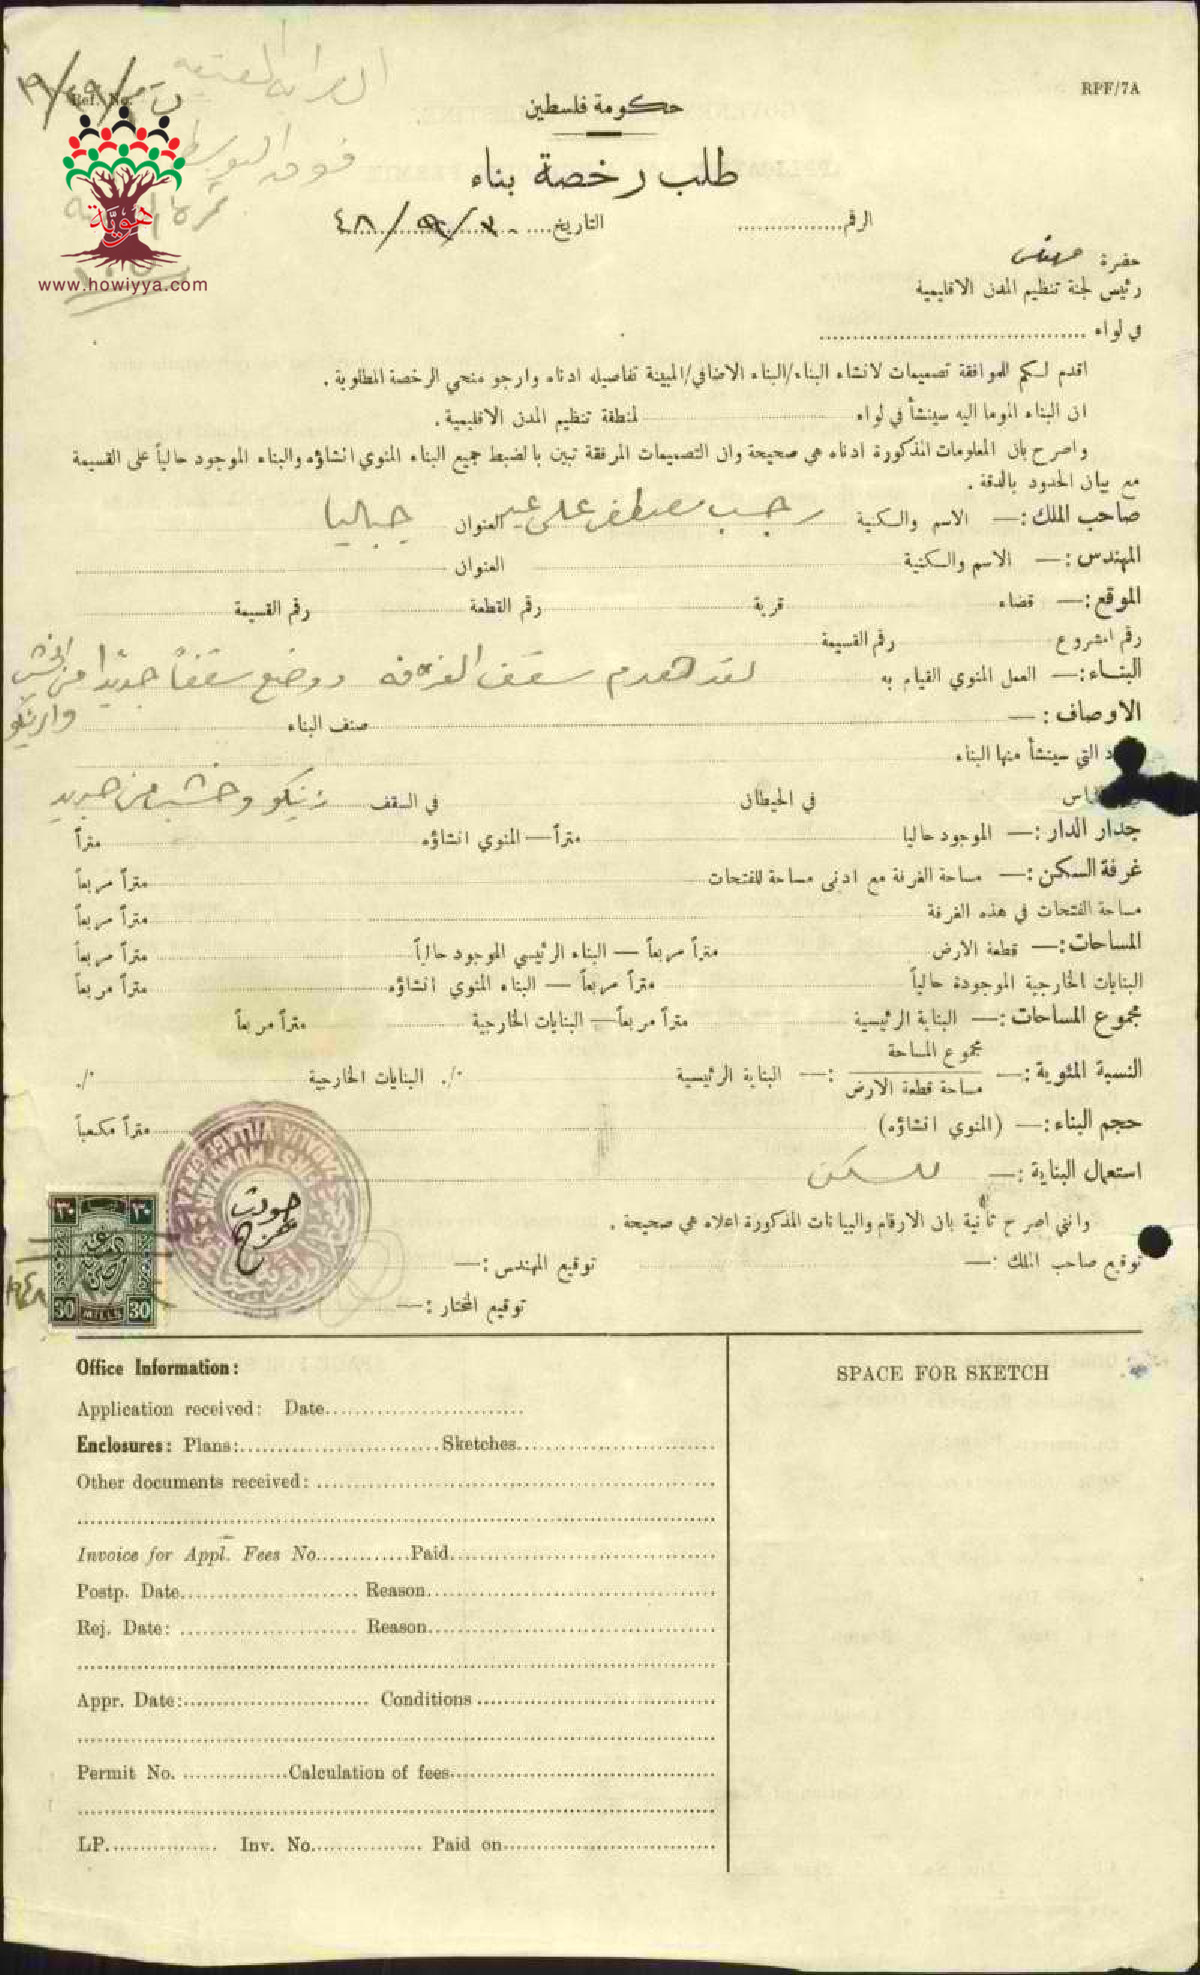 RPF/7A
Ref. No.
حكومة فلسطين
طلب رخصة بناء
هوية
www.howiyya.com
الرقم................ التاريخ.... ٣٠/٩/٤٨
حضرة مهندس
رئيس لجنة تنظيم المدن الاقليمية
في لواء ........................................
اقدم لكم للموافقة تصميمات لانشاء البناء/البناء الاضافي/المبينة تفاصيله ادناه وارجو منحي الرخصة المطلوبة .
ان البناء الموما اليه سينشأ في لواء لمنطقة تنظيم المدن الاقليمية .
واصرح بان المعلومات المذكورة ادناه هي صحيحة وان التصميمات المرفقة تبين بالضبط جميع البناء المنوي انشاؤه والبناء الموجود حالياً على القسيمة
مع بيان الحدود بالدقة .
صاحب الملك :— الاسم والكنية رجب مصطفى علي عيد العنوان جباليا
المهندس :— الاسم والكنية العنوان
الموقع :— قضاء قرية رقم القطعة رقم القسيمة
رقم المشروع رقم القسيمة
البناء :— العمل المنوي القيام به لقد هدم سقف الغرفه ووضع سقفاً جديدا من الخشب
والزينكو
الاوصاف :— صنف البناء
د التي سينشأ منها البناء
في الحيطان في السقف زينكو وخشب من جديد
جدار الدار :— الموجود حاليا متراً— المنوي انشاؤه متراً
غرفة السكن :— مساحة الغرفة مع ادنى مساحة للفتحات متراً مربعاً
مساحة الفتحات في هذه الغرفة متراً مربعاً
المساحات :— قطعة الارض متراً مربعاً — البناء الرئيسي الموجود حالياً متراً مربعاً
البنايات الخارجية الموجودة حالياً متراً مربعاً — البناء المنوي انشاؤه متراً مربعاً
مجموع المساحات :— البناية الرئيسية متراً مربعاً— البنايات الخارجية متراً مربعاً
النسبة المئوية :— مجموع المساحة / مساحة قطعة الارض :— البناية الرئيسية ٪. البنايات الخارجية ٪.
حجم البناء :— (المنوي انشاؤه) متراً مكعباً
استعمال البناية :— للسكن
وانني اصرح ثانية بان الارقام والبيانات المذكورة اعلاه هي صحيحة .
توقيع صاحب الملك :— توقيع المهندس :—
توقيع المختار :—
٣٠ ٣٠
30 MILLS 30
Office Information:
Application received: Date...........................
Enclosures: Plans:...........................Sketches...........................
Other documents received: ...........................
Invoice for Appl. Fees No.............Paid...........................
Postp. Date........................ Reason...........................
Rej. Date: ........................ Reason...........................
Appr. Date:........................ Conditions...........................
Permit No. ................Calculation of fees...........................
LP................ Inv. No................ Paid on...........................
SPACE FOR SKETCH